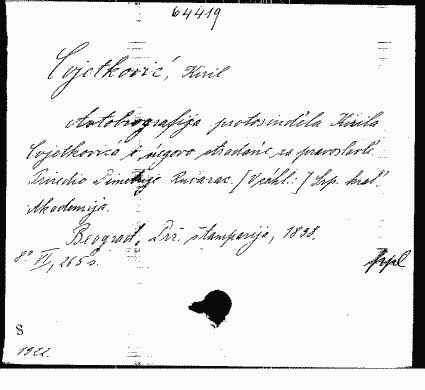 64419
Cvjetković, Kiril
Avtobiografija protosinđela Kirila
Cvjetkovića i njegovo stradanje za pravoslavlě.
Priredio Dimitrije Ruvarac. [V záhl.:] Srp. kral.
Akademija.
Beograd, Drž. štamparija, 1898.
8°. VI, 265 s.
S
1922.